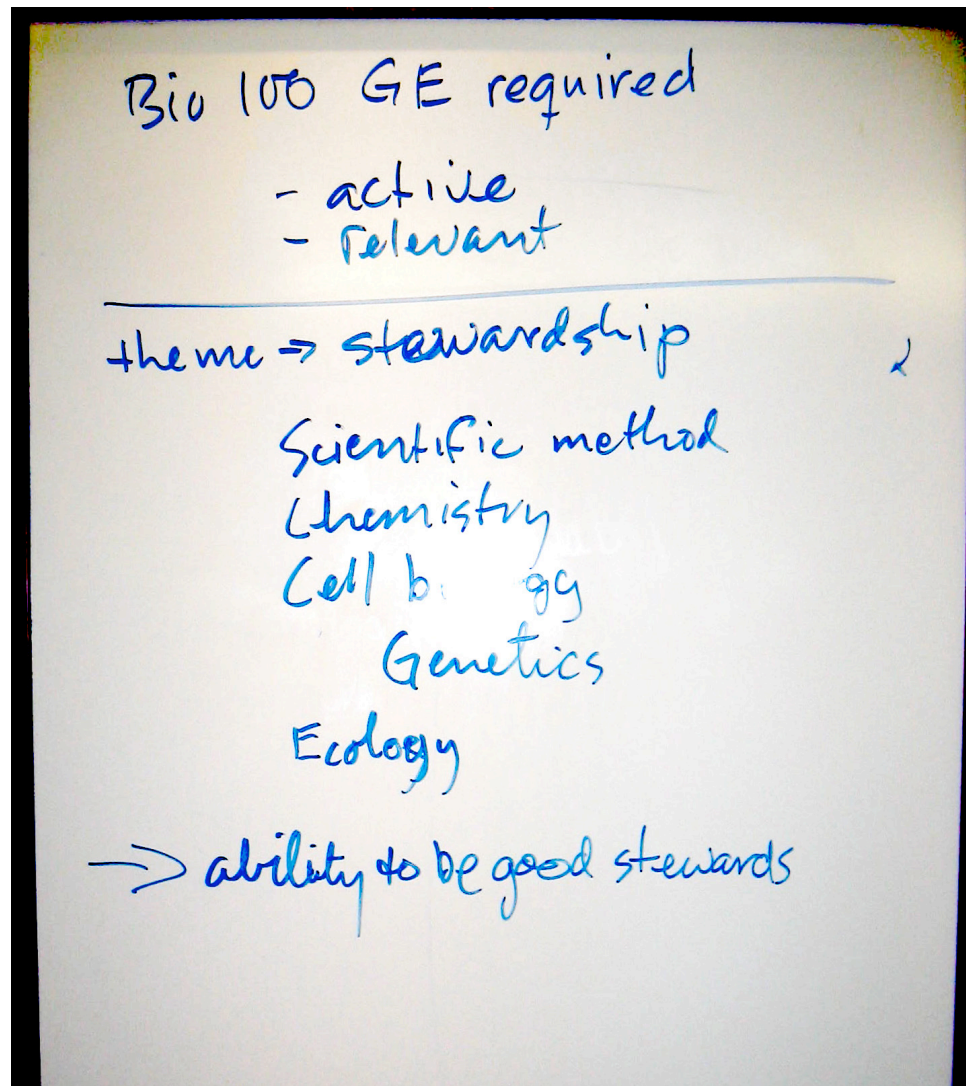 Bio 100 GE required
- active
- relevant
theme => stewardship
Scientific method
Chemistry
Cell b gy
Genetics
Ecology
→ ability to be good stewards